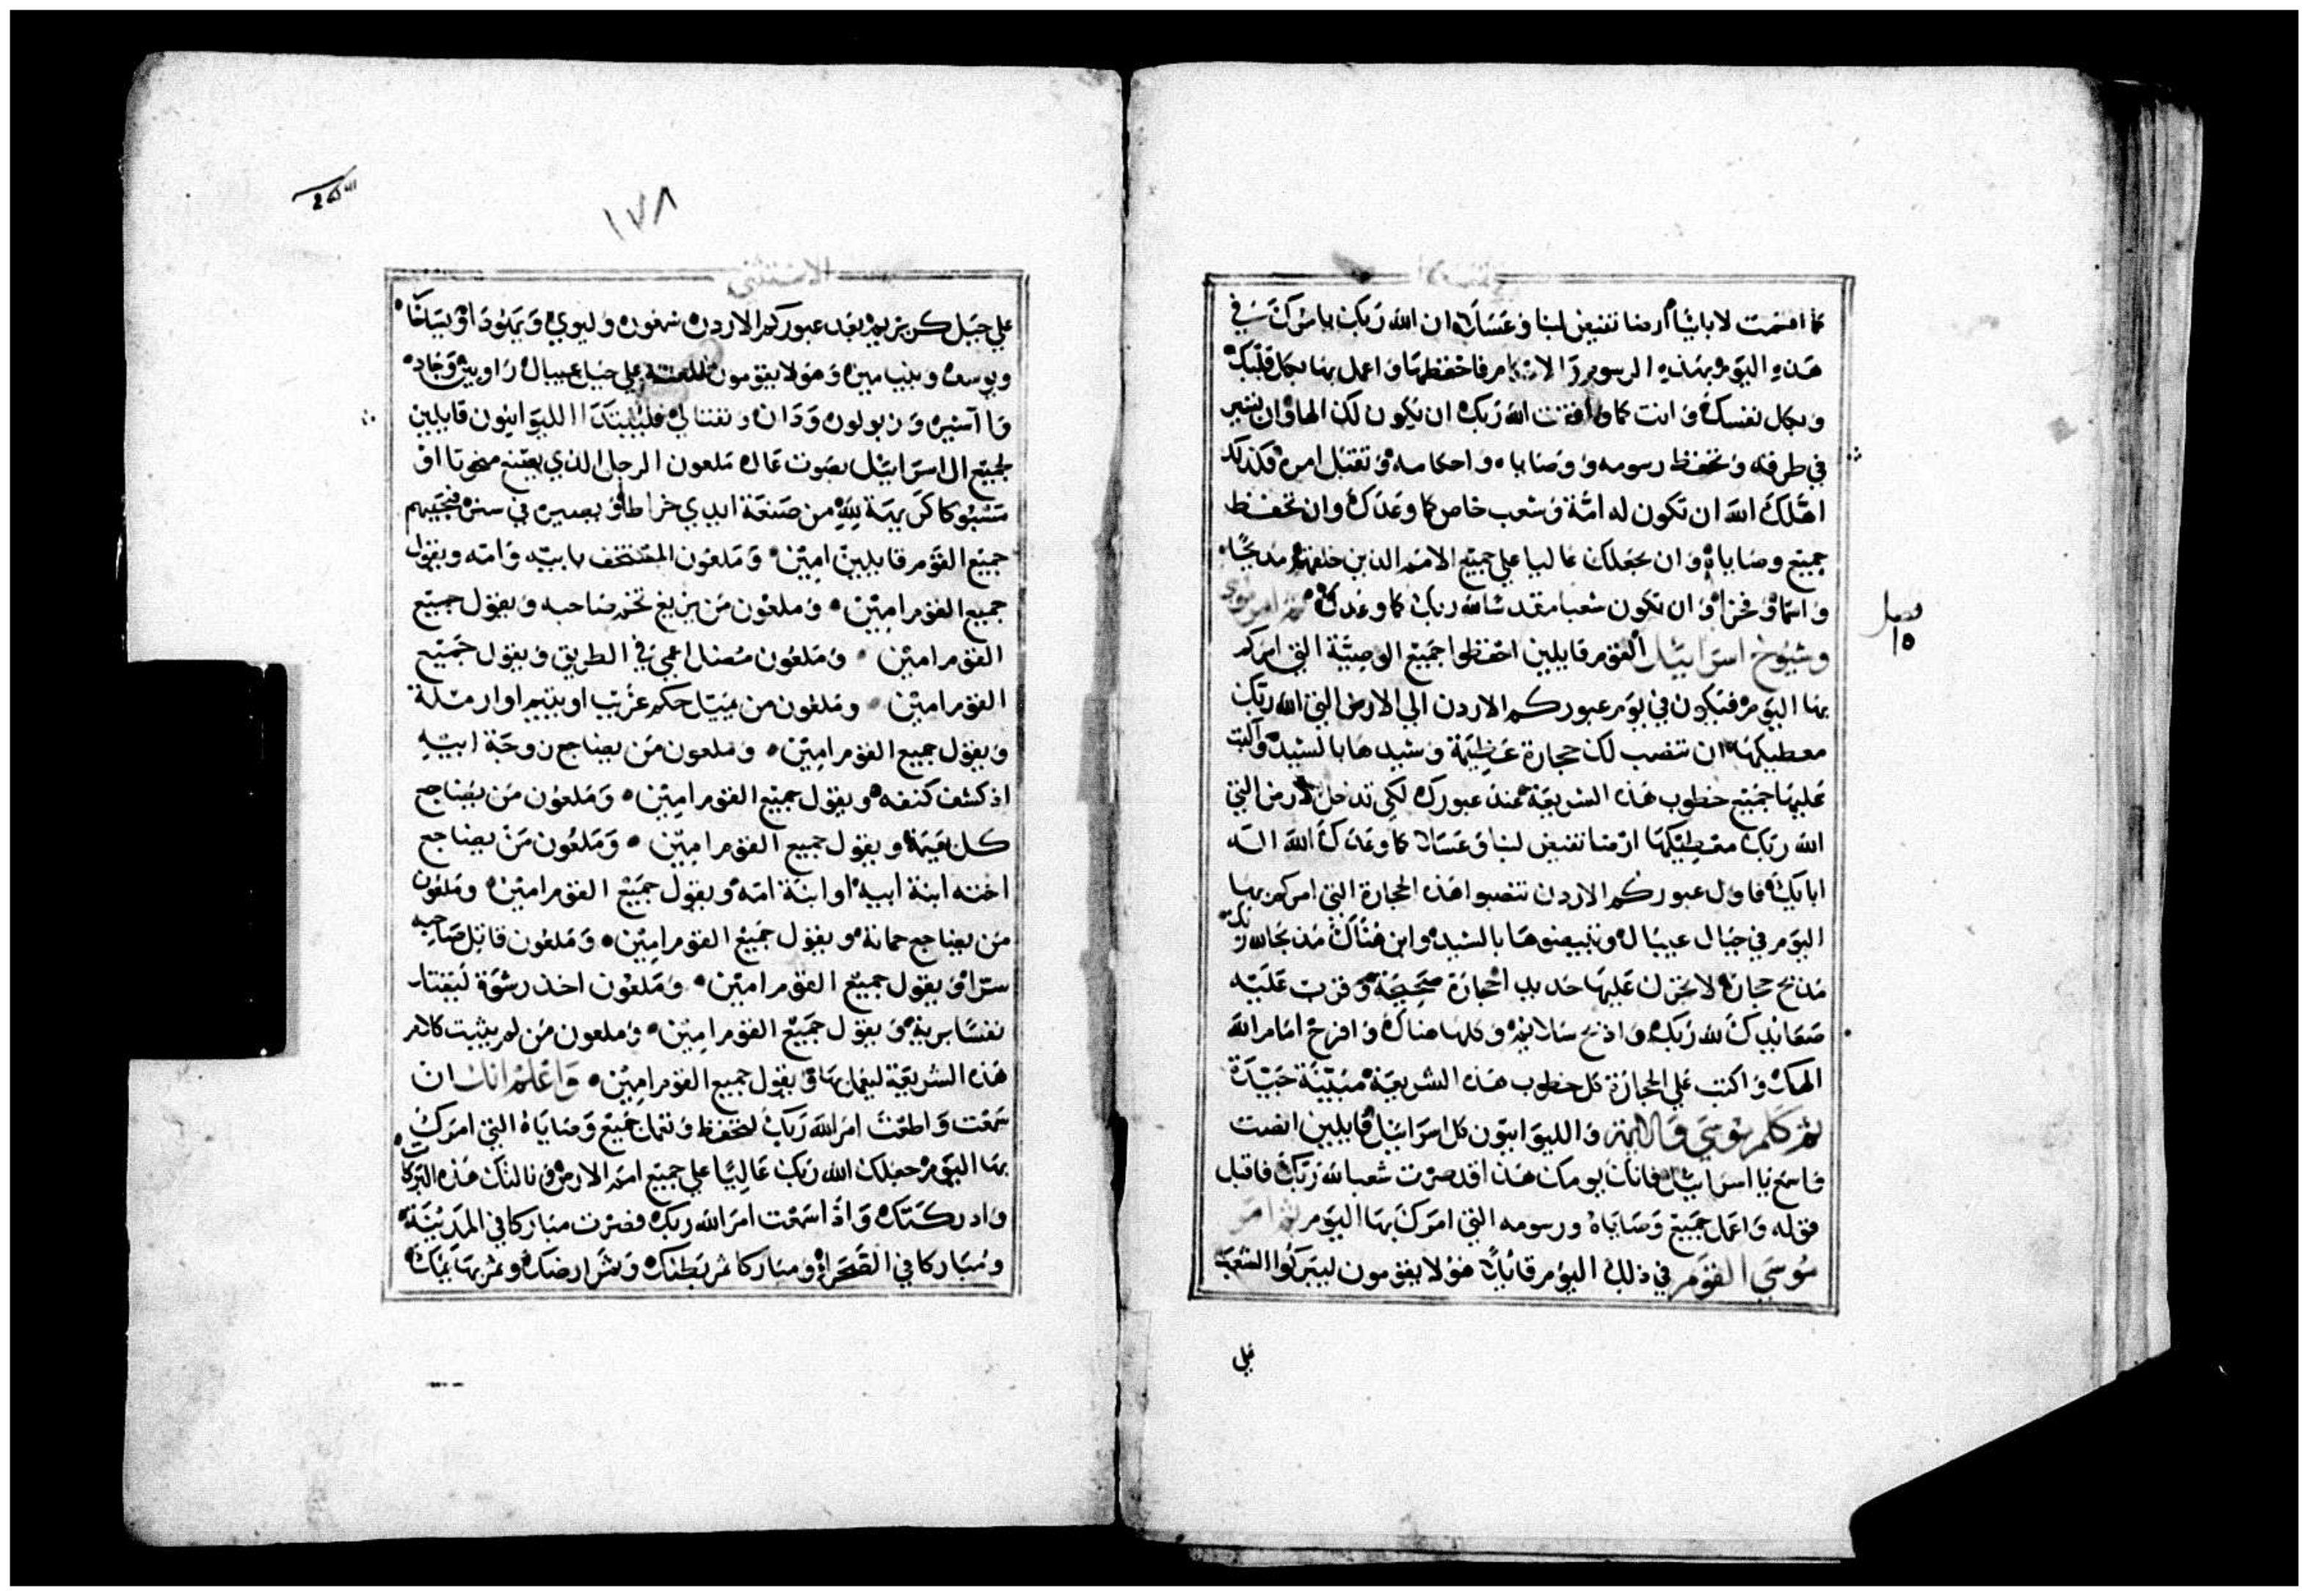 كما اقسمت لابائنا ارضا تفيض لبنا وعسلا ان الله ربك يامرك في
هذه اليوم بهذه الرسوم والاحكام فاحفظها واعمل بها بكل قلبك
وبكل نفسك وانت كما وافقت الله ربك ان يكون لك الها وان تسير
في طرقه وتحفظ رسومه ووصاياه واحكامه وتقبل امره فكذلك
اهلك الله ان تكون له امة وشعب خاص كما وعدك وان تحفظ
جميع وصاياه وان يجعلك عاليا علي جميع الامم الذين خلقهم مديحا
واسما وفخرا وان تكون شعبا مقدسا لله ربك كما وعدك ثم امر موسي
فصل
١٥
وشيوخ اسرائيل القوم قايلين احفظوا جميع الوصية التي امركم
بها اليوم فيكون في يوم عبوركم الاردن الي الارض التي الله ربك
معطيكها ان تنصب لك حجارة عظيمة وشيدها بالشيد واكتب
عليها جميع خطوب هذه الشريعة عند عبورك لكي تدخل الارض التي
الله ربك معطيكها ارضا تفيض لبنا وعسلا كما وعدك الله اله
ابايك فاول عبوركم الاردن تنصبوا هذه الحجارة التي امركم بها
اليوم في جبال عيبال وتبيضوها بالشيد وابن هناك مذبحا لله ربك
مذبح حجارة لا تحرك عليها حديد احجارة صحيحة وقرب عليه
صعايدك لله ربك واذبح سلايم وكلها هناك وافرح امام الله
الهك واكتب علي الحجارة كل خطوب هذه الشريعة مبينة جيدة
ثم كلم موسي والايمة والليوانيون كل اسرائيل قايلين انصت
فاسمع يا اسرائيل فانك يومك هذا قد صرت شعبا لله ربك فاقبل
قوله واعمل جميع وصاياه ورسومه التي امرك بها اليوم ثم امر
موسي القوم في ذلك اليوم قائلا هؤلا يقومون ليبركوا الشعب
علي
١٧٨
الاستثني
علي جبل كريزيم بعد عبوركم الاردن شمعون وليوي ويهودا ويساخا
ويوسف وبنيامين وهولا يقومون للعنة علي جبل عيبال راوبين وجاد
واآسير وزبولون ودان ونفتالي فليبتدا الليوانيون قايلين
لجميع ال اسرائيل بصوت عال ملعون الرجل الذي يصنع منحوتا او
مسبوكا كريهة لله من صنعة ايدي خراط ويصيره في ستر فيجيبهم
جميع القوم قايلين امين وملعون المستخف بابيه وامه ويقول
جميع القوم امين وملعون من يزيغ تخم صاحبه ويقول جميع
القوم امين وملعون مضل اعمي في الطريق ويقول جميع
القوم امين وملعون من يميل حكم غريب او يتيم او ارملة
ويقول جميع القوم امين وملعون من يضاجع زوجة ابيه
اذ كشف كنفه ويقول جميع القوم امين وملعون من يضاجع
كل بهيمة ويقول جميع القوم امين وملعون من يضاجع
اخته ابنة ابيه او ابنة امه ويقول جميع القوم امين وملعون
من يضاجع حماته ويقول جميع القوم امين وملعون قاتل صاحبه
سترا ويقول جميع القوم امين وملعون اخذ رشوة ليقتل
نفسا برية ويقول جميع القوم امين وملعون من لم يثبت كلام
هذه الشريعة ليعمل بها ويقول جميع القوم امين واعلم انك ان
سمعت واطعت امر الله ربك لتحفظ وتعمل جميع وصاياه التي امرك
بها اليوم جعلك الله ربك عاليا علي جميع امم الارض ونالتك هذه البركات
وادركتك واذا سمعت امر الله ربك فصرت مباركا في المدينة
ومباركا في الصحرا ومباركا ثمر بطنك وثمر ارضك وثمر بهايمك